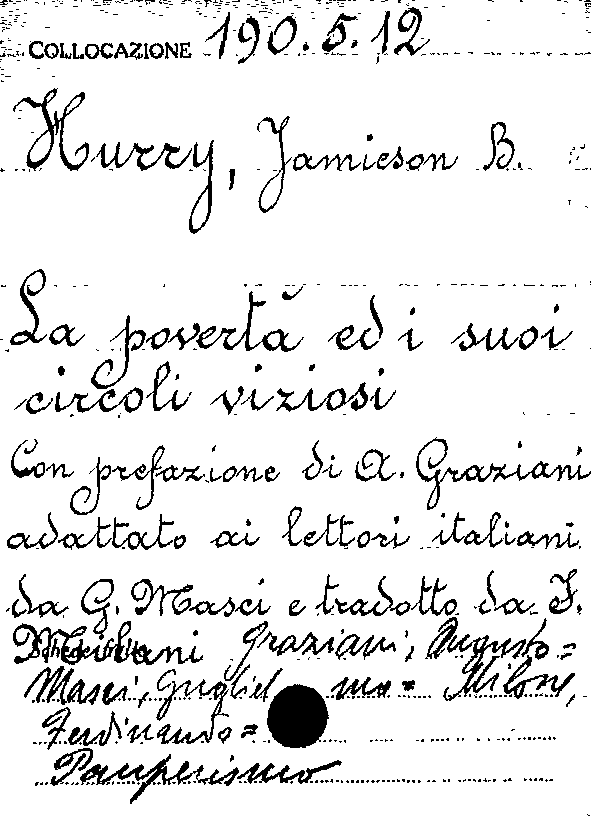 COLLOCAZIONE 190.5.12
Hurry, Jamieson B.
La povertà ed i suoi
circoli viziosi
Con prefazione di A. Graziani
adattato ai lettori italiani
da G. Masci e tradotto da F.
Milani Graziani, Augusto=
Masci, Guglielmo= Milone,
Ferdinando=
Pauperismo